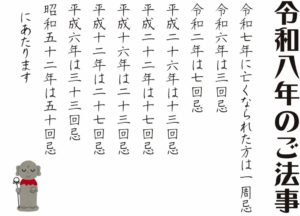 令和八年のご法事
令和七年に亡くなられた方は一周忌
令和六年は三回忌
令和二年は七回忌
平成二十六年は十三回忌
平成二十二年は十七回忌
平成十六年は二十三回忌
平成十二年は二十七回忌
平成六年は三十三回忌
昭和五十二年は五十回忌
にあたります